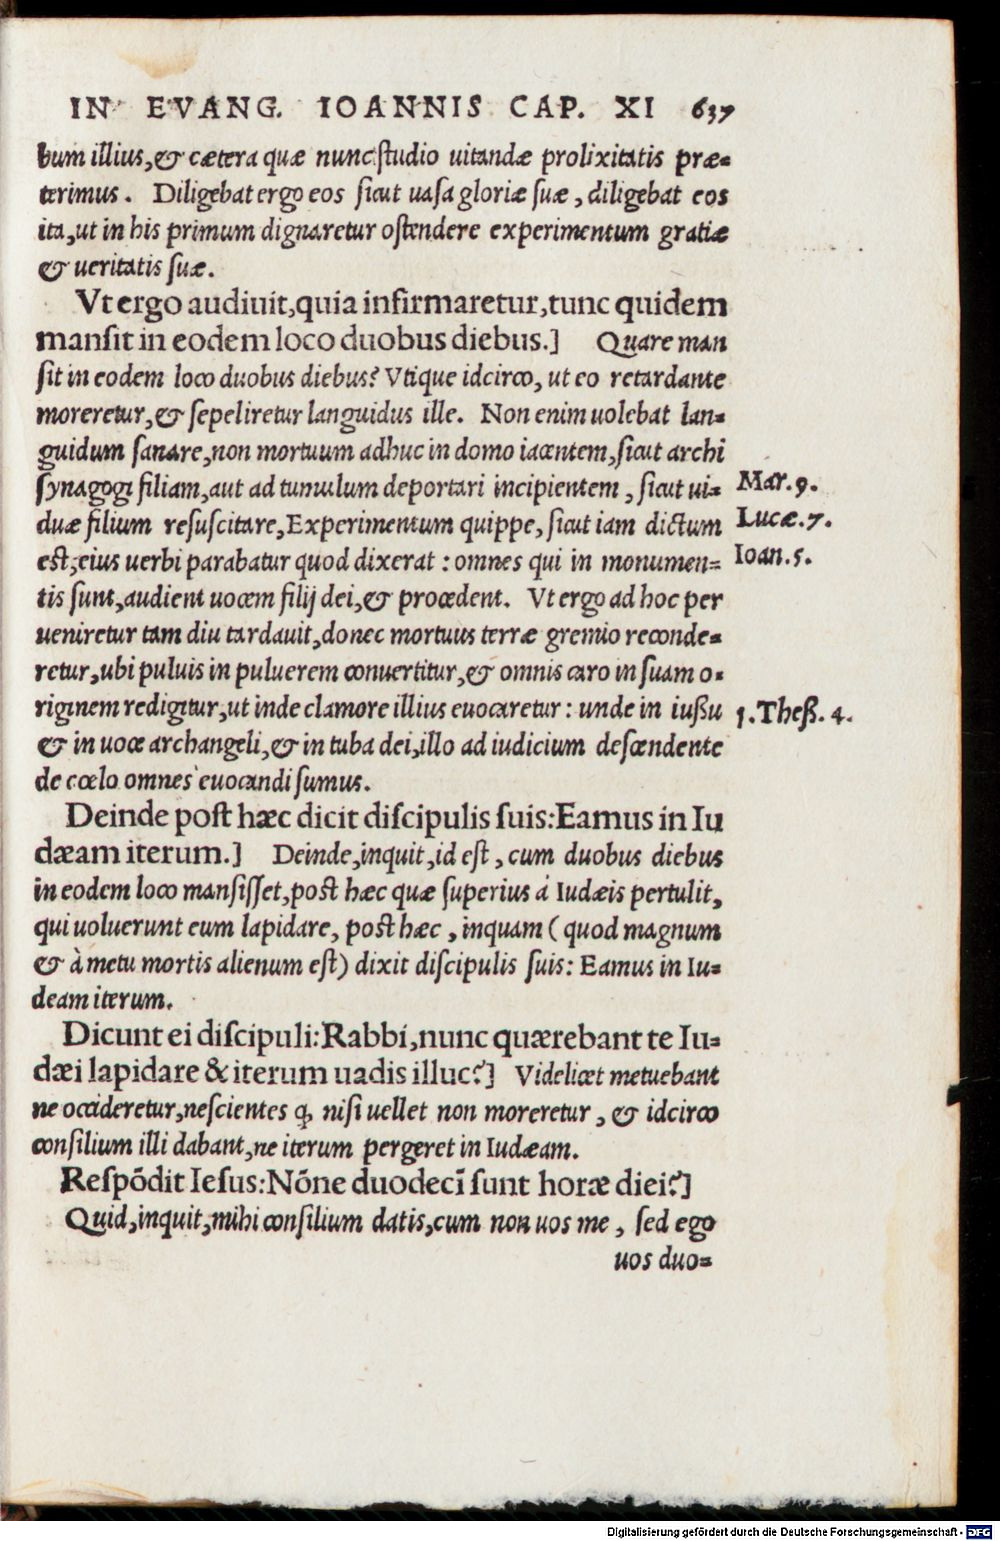 IN EVANG. IOANNIS CAP. XI 637
bum illius,& cætera quæ nunc studio uitandæ prolixitatis præ-
terimus. Diligebat ergo eos sicut uasa gloriæ suæ, diligebat eos
ita,ut in his primum dignaretur ostendere experimentum gratiæ
& ueritatis suæ.
Vt ergo audiuit,quia infirmaretur,tunc quidem
mansit in eodem loco duobus diebus.] Quare man
sit in eodem loco duobus diebus? Vtique idcirco, ut eo retardante
moreretur,& sepeliretur languidus ille. Non enim uolebat lan-
guidum sanare,non mortuum adhuc in domo iacentem,sicut archi
synagogi filiam,aut ad tumulum deportari incipientem, sicut ui- Mar.9.
duæ filium resuscitare,Experimentum quippe,sicut iam dictum Lucæ.7.
est,eius uerbi parabatur quod dixerat : omnes qui in monumen- Ioan.5.
tis sunt,audient uocem filij dei,& procedent. Vt ergo ad hoc per
ueniretur tam diu tardauit,donec mortuus terræ gremio reconde-
retur,ubi puluis in puluerem conuertitur,& omnis caro in suam o-
riginem redigitur,ut inde clamore illius euocaretur : unde in iußu 1.Theß.4.
& in uoce archangeli,& in tuba dei,illo ad iudicium descendente
de cœlo omnes euocandi sumus.
Deinde post hæc dicit discipulis suis:Eamus in Iu
dæam iterum.] Deinde,inquit,id est, cum duobus diebus
in eodem loco mansisset,post hæc quæ superius á Iudæis pertulit,
qui uoluerunt eum lapidare, post hæc, inquam ( quod magnum
& à metu mortis alienum est) dixit discipulis suis: Eamus in Iu-
deam iterum.
Dicunt ei discipuli:Rabbi,nunc quærebant te Iu-
dæi lapidare & iterum uadis illuc?] Videlicet metuebant
ne occideretur,nescientes ꝙ nisi uellet non moreretur, & idcirco
consilium illi dabant,ne iterum pergeret in Iudæam.
Respõdit Iesus:Nõne duodecĩ sunt horæ diei?]
Quid,inquit,mihi consilium datis,cum non uos me, sed ego
uos duo-
Digitalisierung gefördert durch die Deutsche Forschungsgemeinschaft - DFG